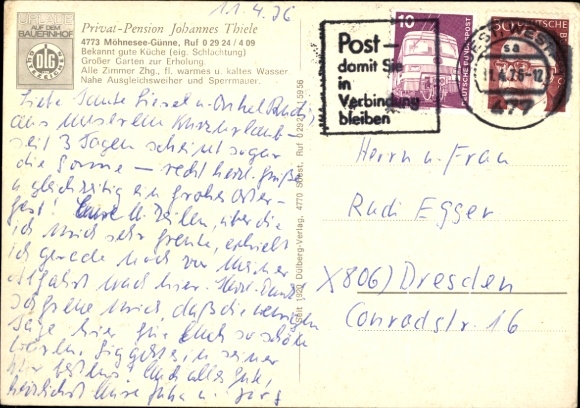 11.4.76
URLAUB
AUF DEM
BAUERNHOF
DLG
GÜTEZEICHEN
Privat-Pension Johannes Thiele
4773 Möhnesee-Günne, Ruf 0 29 24 / 4 09
Bekannt gute Küche (eig. Schlachtung)
Großer Garten zur Erholung.
Alle Zimmer Zhg., fl. warmes u. kaltes Wasser
Nahe Ausgleichsweiher und Sperrmauer.
Liebe Tante Liesel u. Onkel Rudi,
aus unserem Kurzurlaub -
seit 3 Tagen scheint sogar
die Sonne - recht herzl. Grüße
u. gleichzeitig ein frohes Oster-
fest! Eure lb. Zeilen, über die
ich mich sehr freute, erhielt
ich gerade noch vor meiner
Abfahrt nach hier. Herzl. Dank
so freue mich, daß die wenigen
Tage hier für Euch so schön
waren.
Euch alles Gute,
herzlichst Eure u. Jörg
Seit 1920 Dülberg-Verlag, 4770 Soest, Ruf 0 29 21
Post -
damit Sie
in
Verbindung
bleiben
10
DEUTSCHE BUNDESPOST
SOEST, WESTF
sa
11.4.76-12
477
Herrn u. Frau
Rudi Egger
X806) Dresden
Conradstr. 16